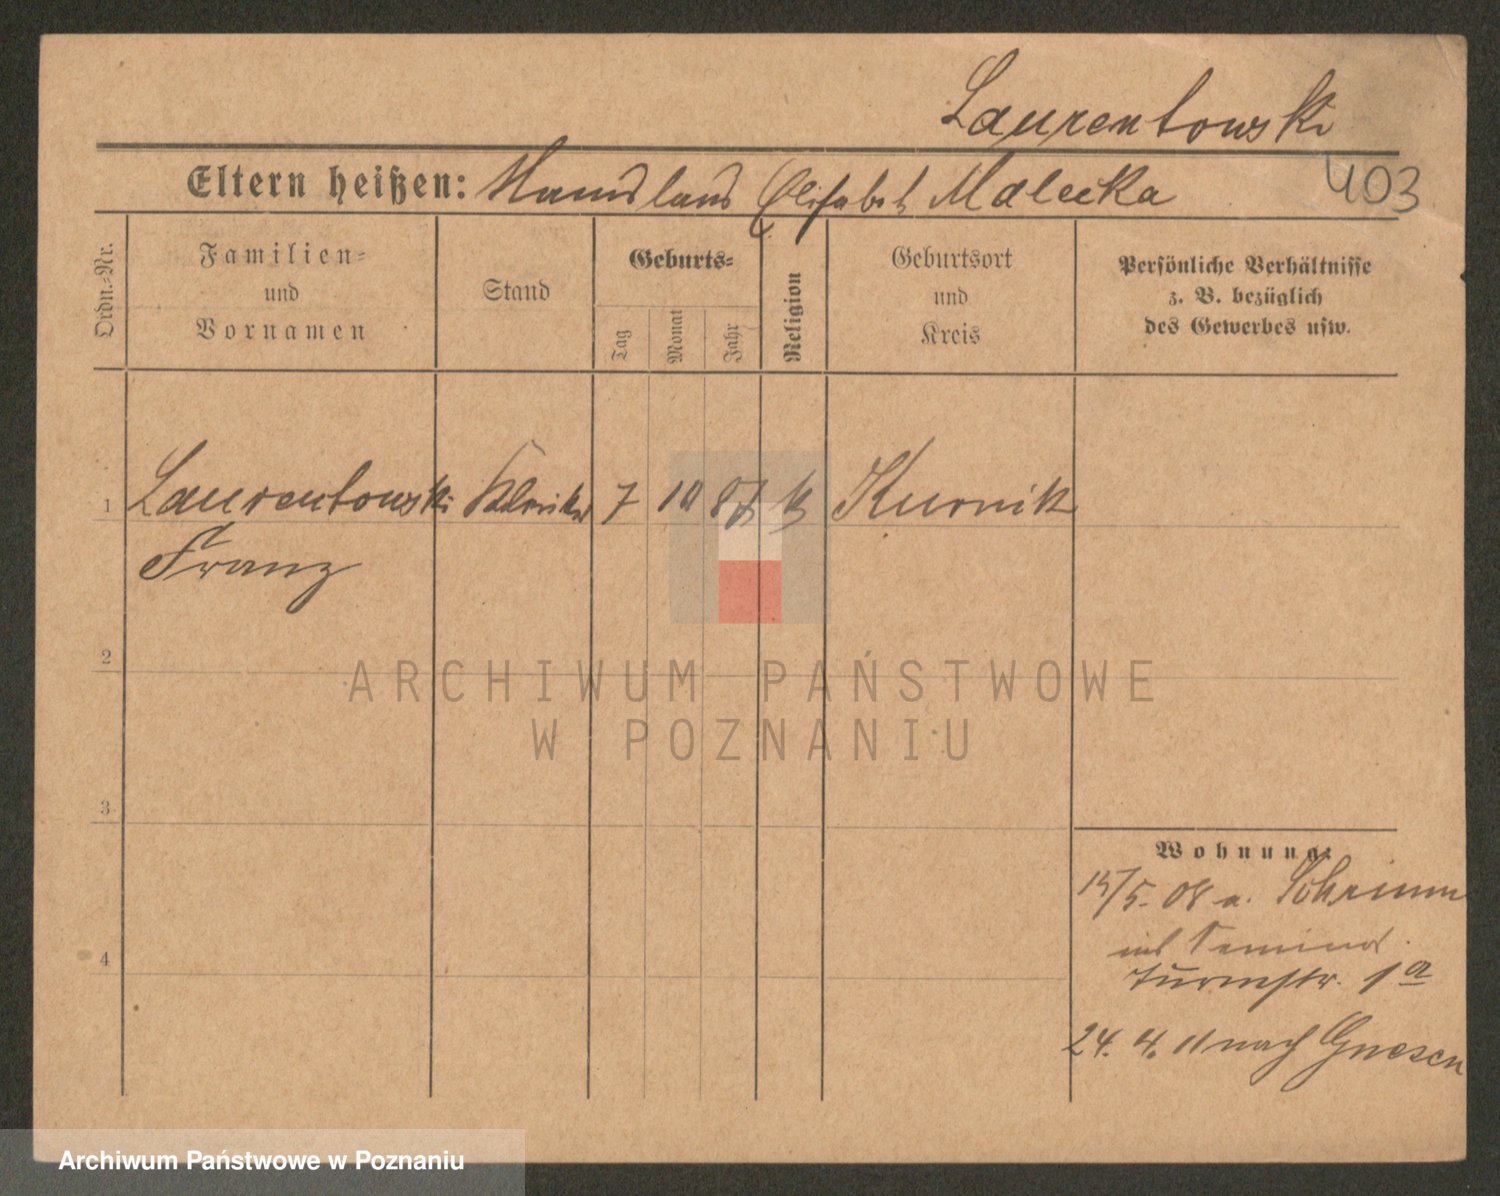 Laurentowski
403
Eltern heißen: Elisabeth Malecka
Ordn.-Nr.
Familien-
und
Vornamen
Stand
Geburts-
Tag
Monat
Jahr
Religion
Geburtsort
und
Kreis
Persönliche Verhältnisse
z. B. bezüglich
des Gewerbes usw.
1 Laurentowski Kleriker 7 10 87 k Kurnik
Franz
2
3
4
Wohnung:
/5. 08 a. Schrimm
ins Seminar
Turmstr. 1a
24. 4. 11 nach Gnesen
ARCHIWUM PAŃSTWOWE
W POZNANIU
Archiwum Państwowe w Poznaniu